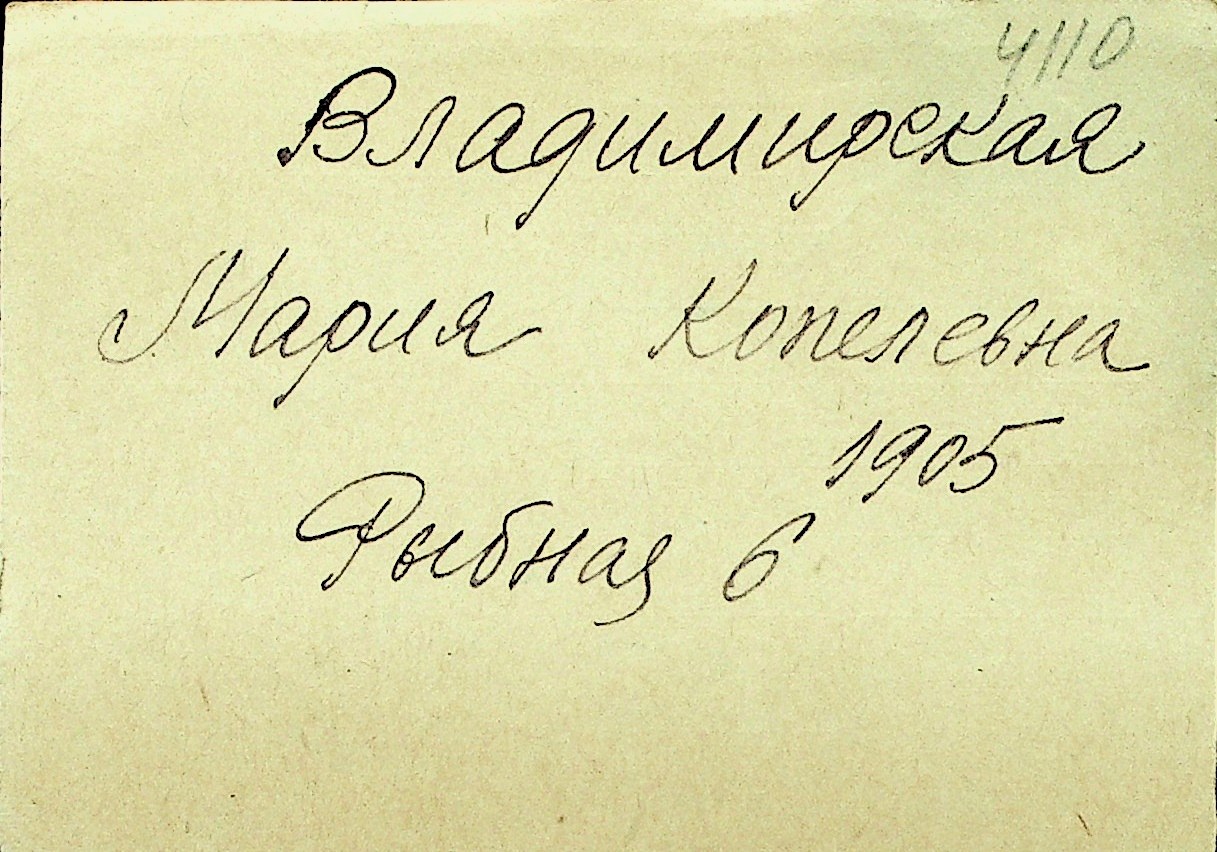 4110
Владимирская
Мария Копелевна
1905
Рыбная 6